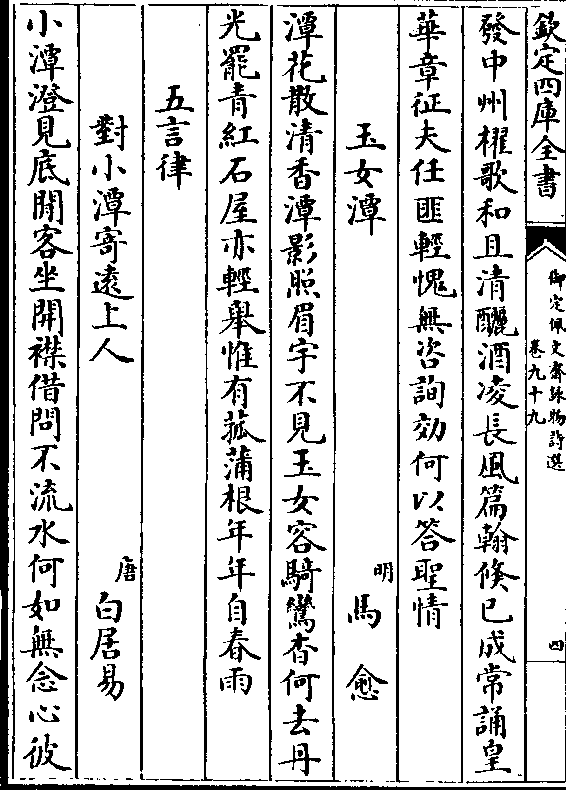 欽定四庫全書
御定佩文齋詠物詩選
卷九十九
四
發中州櫂歌和且清釃酒凌長風篇翰倏已成常誦皇
華章征夫任匪輕愧無咨詢効何以答聖情
玉女潭
明
馬愈
潭花散清香潭影照眉宇不見玉女容騎鸞杳何去丹
光罷青紅石屋亦輕舉惟有菰蒲根年年自春雨
五言律
對小潭寄遠上人
唐
白居易
小潭澄見底閒客坐開襟借問不流水何如無念心彼